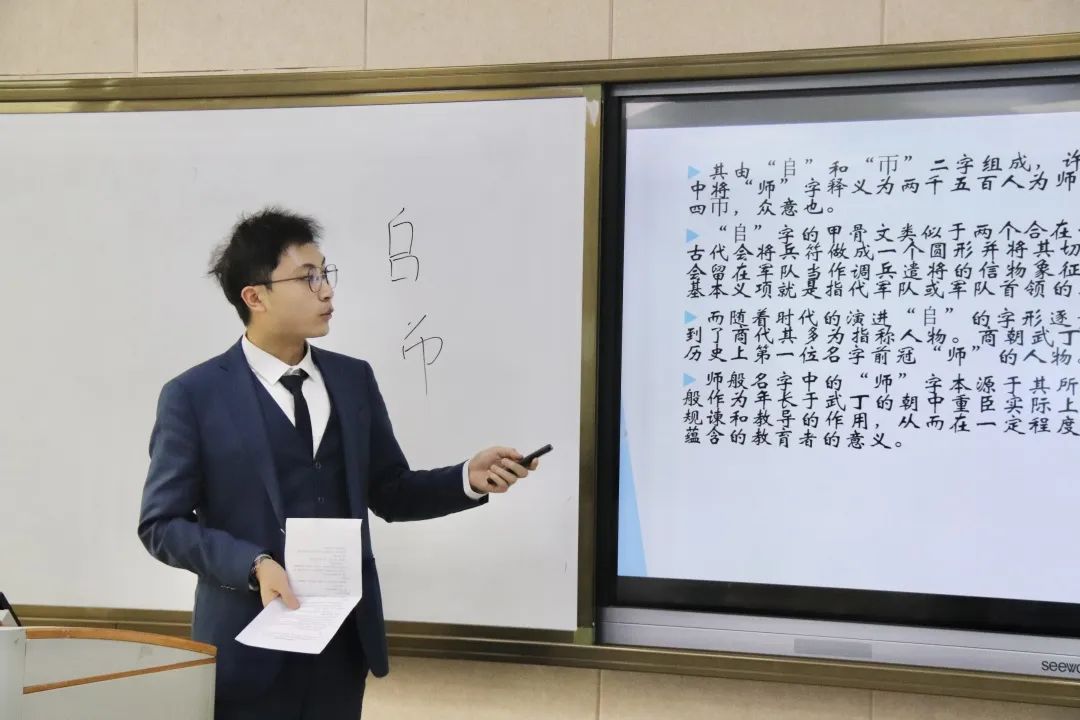 𠂤
帀
其由“𠂤”和“帀”二字组成,许
中将“师”字释义为两千五百人为师
四帀,众意也。
“𠂤”字的甲骨文类似于两个合在
古代会将兵符做成一个圆形并将其切
会留在军队当作调兵遣将的信物象征
基本义项就是指代军队或军队首领的
而随着时代的演进“𠂤”的字形逐
到了商代其多为指称人物。商朝武丁
历史上第一位名字前冠“师”的人物。
师般名字中的“师”字本源于其所
般作为年长于武丁的朝中重臣实际上
规谏和教导的作用,从而在一定程度
蕴含的教育者的意义。
seewo